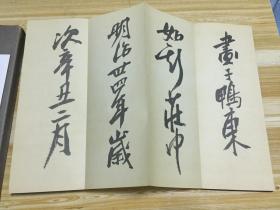 畫于鴨東
如影莊中
明治卅四年歲
次辛丑二月